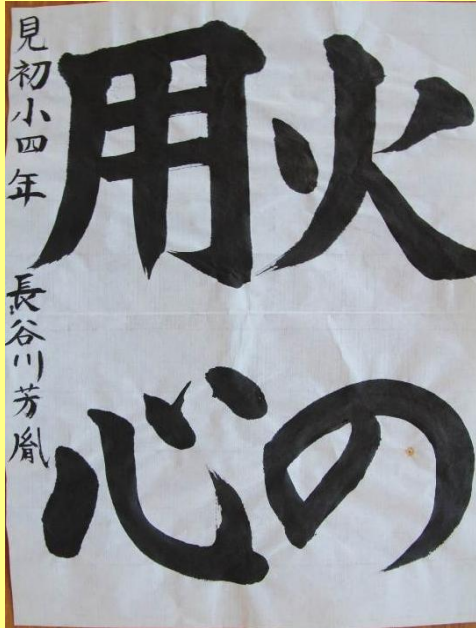 火の
用心
見初小四年 長谷川芳胤